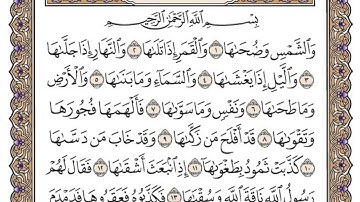 بِسْمِ اللَّهِ الرَّحْمَٰنِ الرَّحِيمِ
وَالشَّمْسِ وَضُحَاهَا ١ وَالْقَمَرِ إِذَا تَلَاهَا ٢ وَالنَّهَارِ إِذَا جَلَّاهَا
٣ وَاللَّيْلِ إِذَا يَغْشَاهَا ٤ وَالسَّمَاءِ وَمَا بَنَاهَا ٥ وَالْأَرْضِ
وَمَا طَحَاهَا ٦ وَنَفْسٍ وَمَا سَوَّاهَا ٧ فَأَلْهَمَهَا فُجُورَهَا
وَتَقْوَاهَا ٨ قَدْ أَفْلَحَ مَن زَكَّاهَا ٩ وَقَدْ خَابَ مَن دَسَّاهَا
١٠ كَذَّبَتْ ثَمُودُ بِطَغْوَاهَا ١١ إِذِ انبَعَثَ أَشْقَاهَا ١٢ فَقَالَ لَهُمْ
رَسُولُ اللَّهِ نَاقَةَ اللَّهِ وَسُقْيَاهَا ١٣ فَكَذَّبُوهُ فَعَقَرُوهَا فَدَمْدَمَ